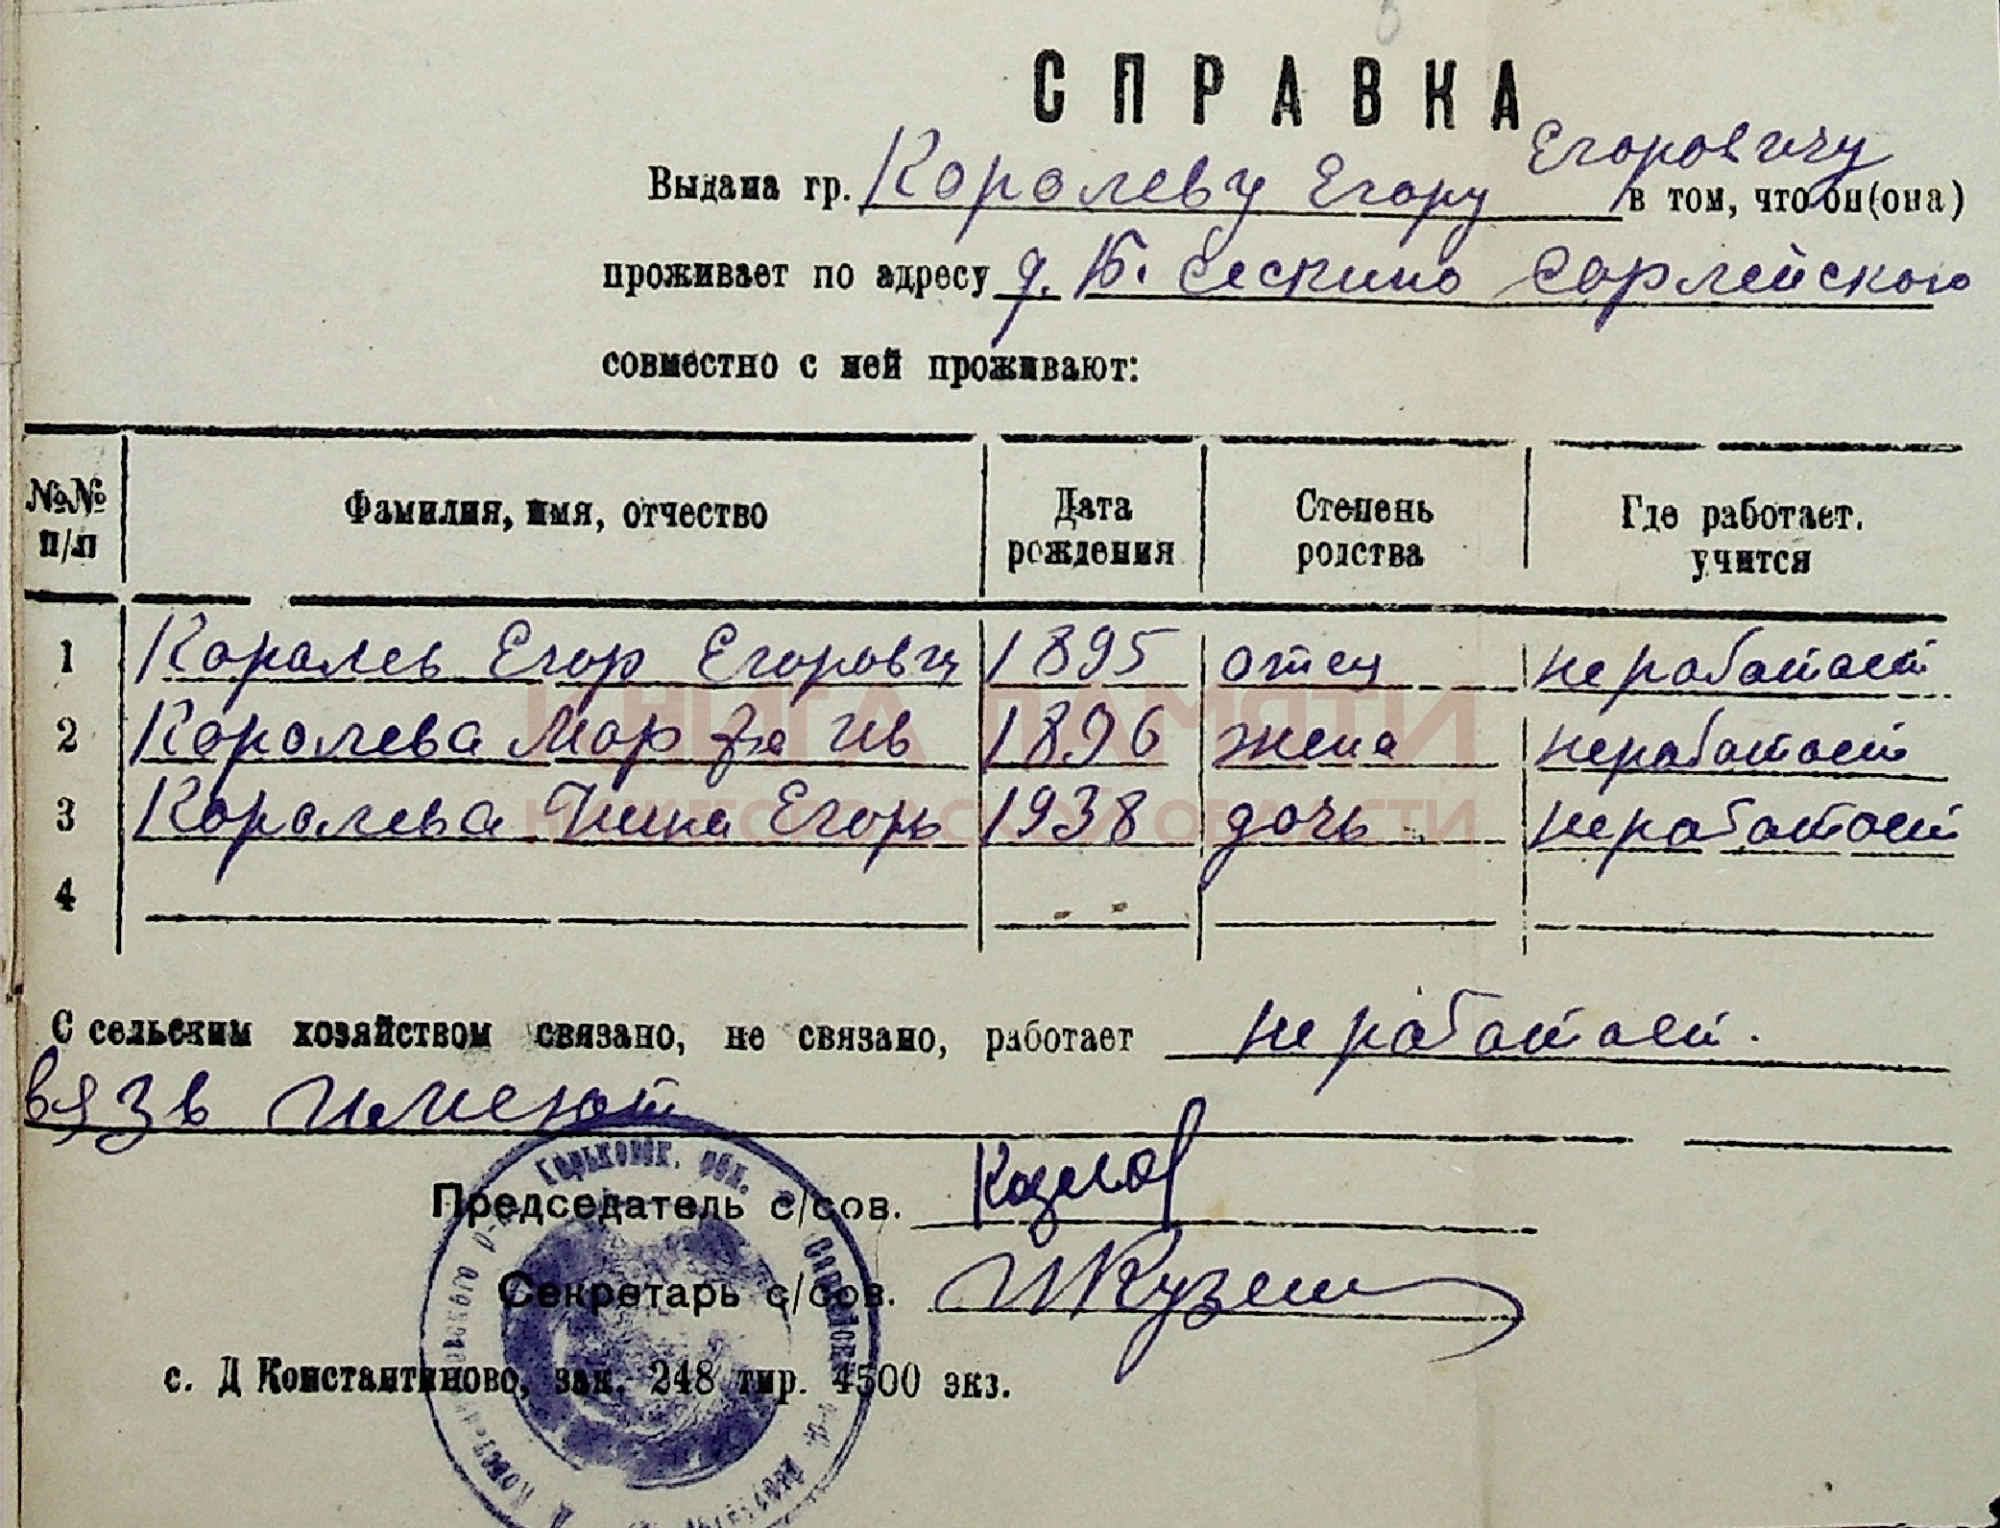 СПРАВКА
Выдана гр. Королеву Егору Егоровичу в том, что он(она)
проживает по адресу д. Б. Сескино Сарлейского
совместно с ней проживают:
№№ п/п Фамилия, имя, отчество Дата рождения Степень родства Где работает. учится
1 Королев Егор Егорович 1895 отец не работает
2 Королева Марфа Ив 1896 жена не работает
3 Королева Нина Егорь 1938 дочь не работает
4
КНИГА ПАМЯТИ
НИЖЕГОРОДСКОЙ ОБЛАСТИ
С сельским хозяйством связано, не связано, работает не работает.
вязь имеют
Горьковск. обл.
Председатель с/сов. Козлов
Секретарь с/сов.
с. Д Константиново, зак. 248 тир. 4500 экз.